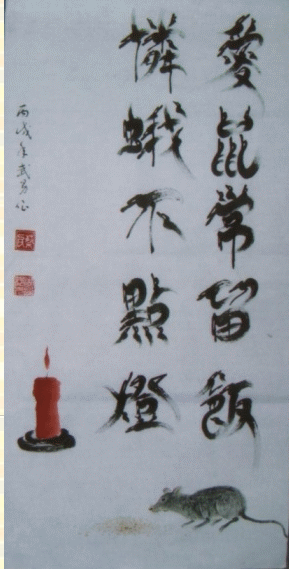 愛鼠常留飯
憐蛾不點燈
丙戌年武方作